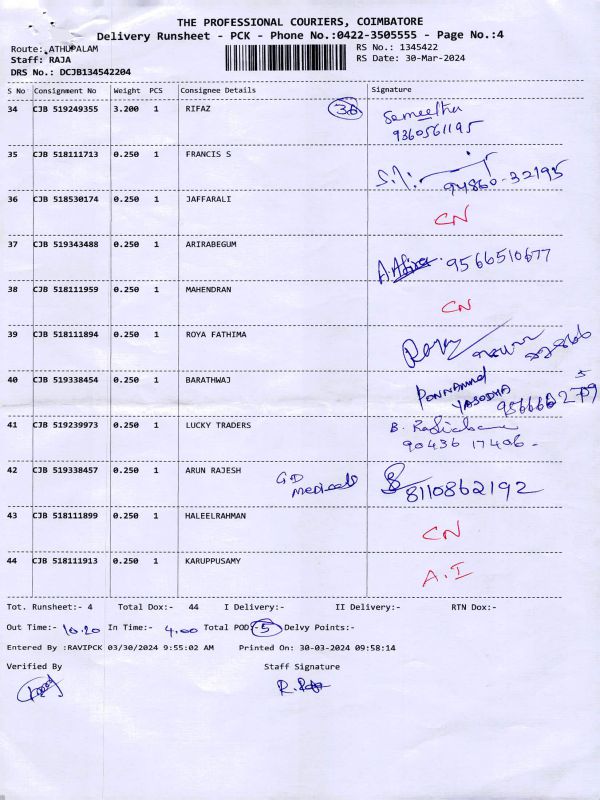 THE PROFESSIONAL COURIERS, COIMBATORE
Delivery Runsheet - PCK - Phone No.:0422-3505555 - Page No.:4
Route: ATHUPALAM
RS No.: 1345422
Staff: RAJA
RS Date: 30-Mar-2024
DRS No.: DCJB134542204
S No Consignment No Weight PCS Consignee Details Signature
34 CJB 519249355 3.200 1 RIFAZ 36 Sameetha
9360561195
35 CJB 518111713 0.250 1 FRANCIS S
94860-32195
36 CJB 518530174 0.250 1 JAFFARALI CN
37 CJB 519343488 0.250 1 ARIRABEGUM 9566510677
38 CJB 518111959 0.250 1 MAHENDRAN CN
39 CJB 518111894 0.250 1 ROYA FATHIMA
40 CJB 519338454 0.250 1 BARATHWAJ
YASODHA
41 CJB 519239973 0.250 1 LUCKY TRADERS B.
90436 17406-
42 CJB 519338457 0.250 1 ARUN RAJESH GD
Medicals 8110862192
43 CJB 518111899 0.250 1 HALEELRAHMAN CN
44 CJB 518111913 0.250 1 KARUPPUSAMY A.I
Tot. Runsheet:- 4 Total Dox:- 44 I Delivery:- II Delivery:- RTN Dox:-
Out Time:- 10.20 In Time:- 4.00 Total POD:- 5 Delvy Points:-
Entered By :RAVIPCK 03/30/2024 9:55:02 AM Printed On: 30-03-2024 09:58:14
Verified By Staff Signature